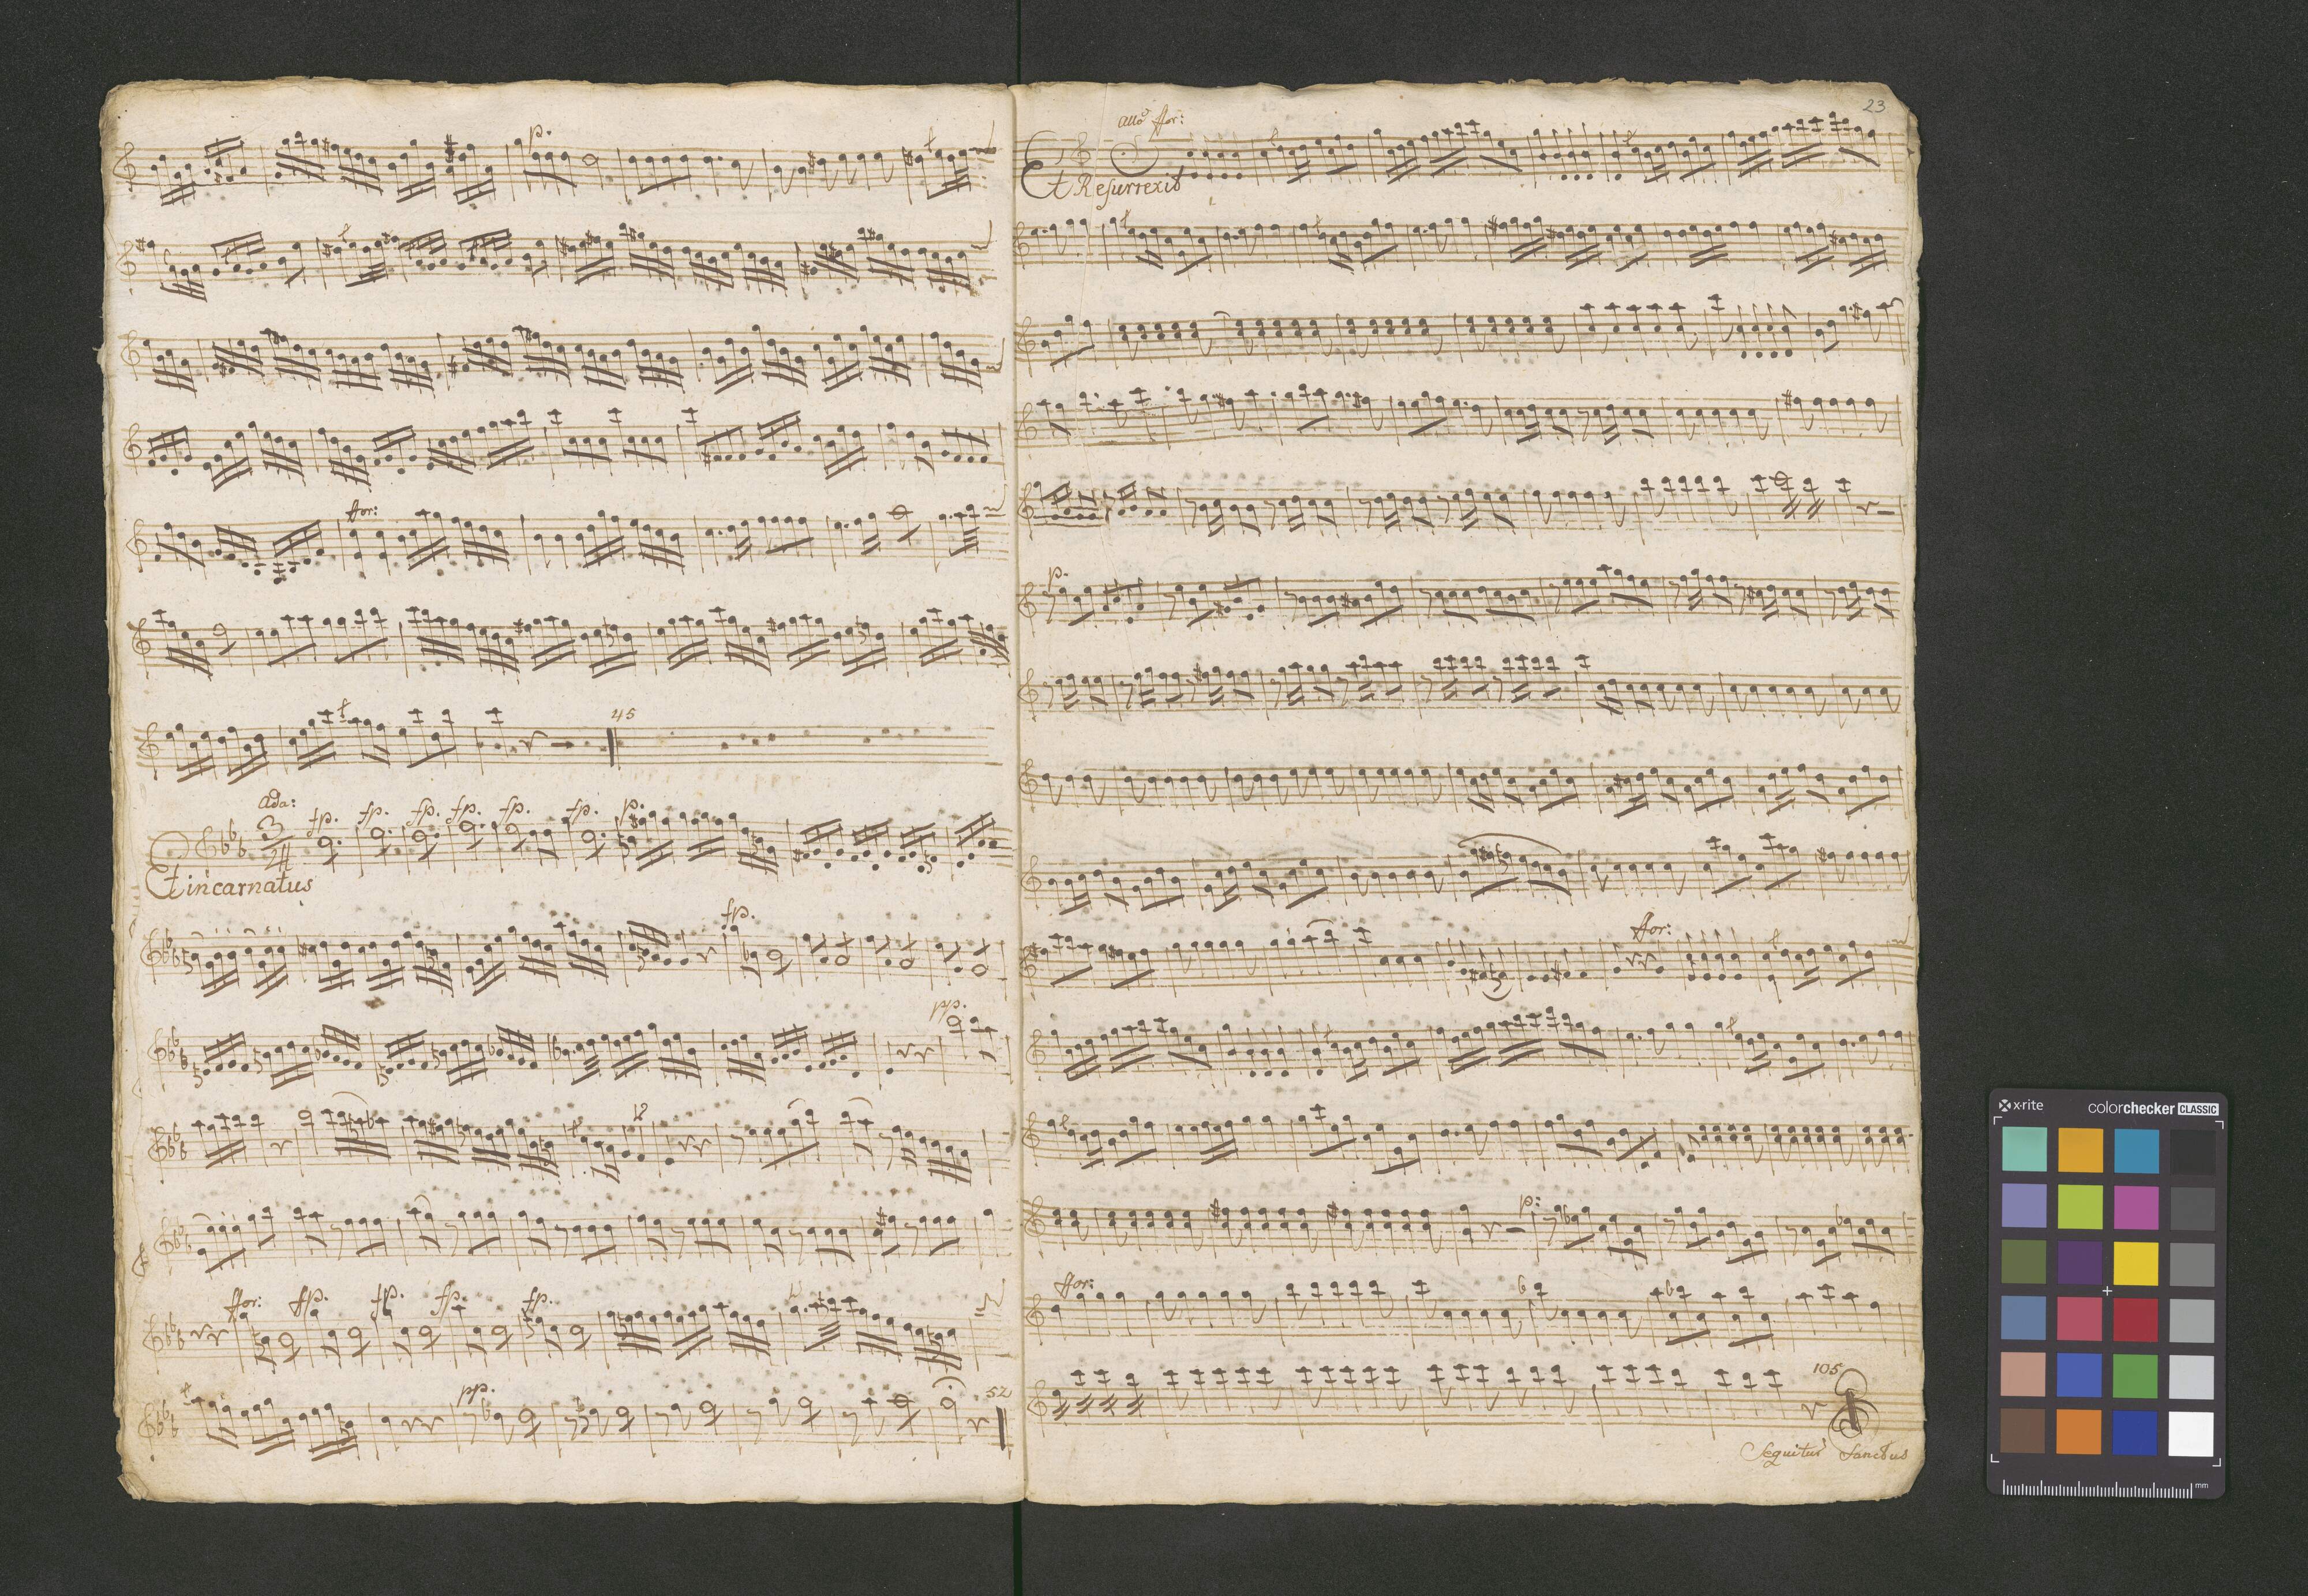 p.
for:
45
ada:
3
fp. fp. fp. fp. fp. fp. p.
Et incarnatus
fp.
pp.
for: fp. fp. fp. fp.
pp. 52
23
allo for:
Et Resurrexit
p.
for:
p:
for:
105
Sequitur Sanctus
x-rite colorchecker CLASSIC
mm